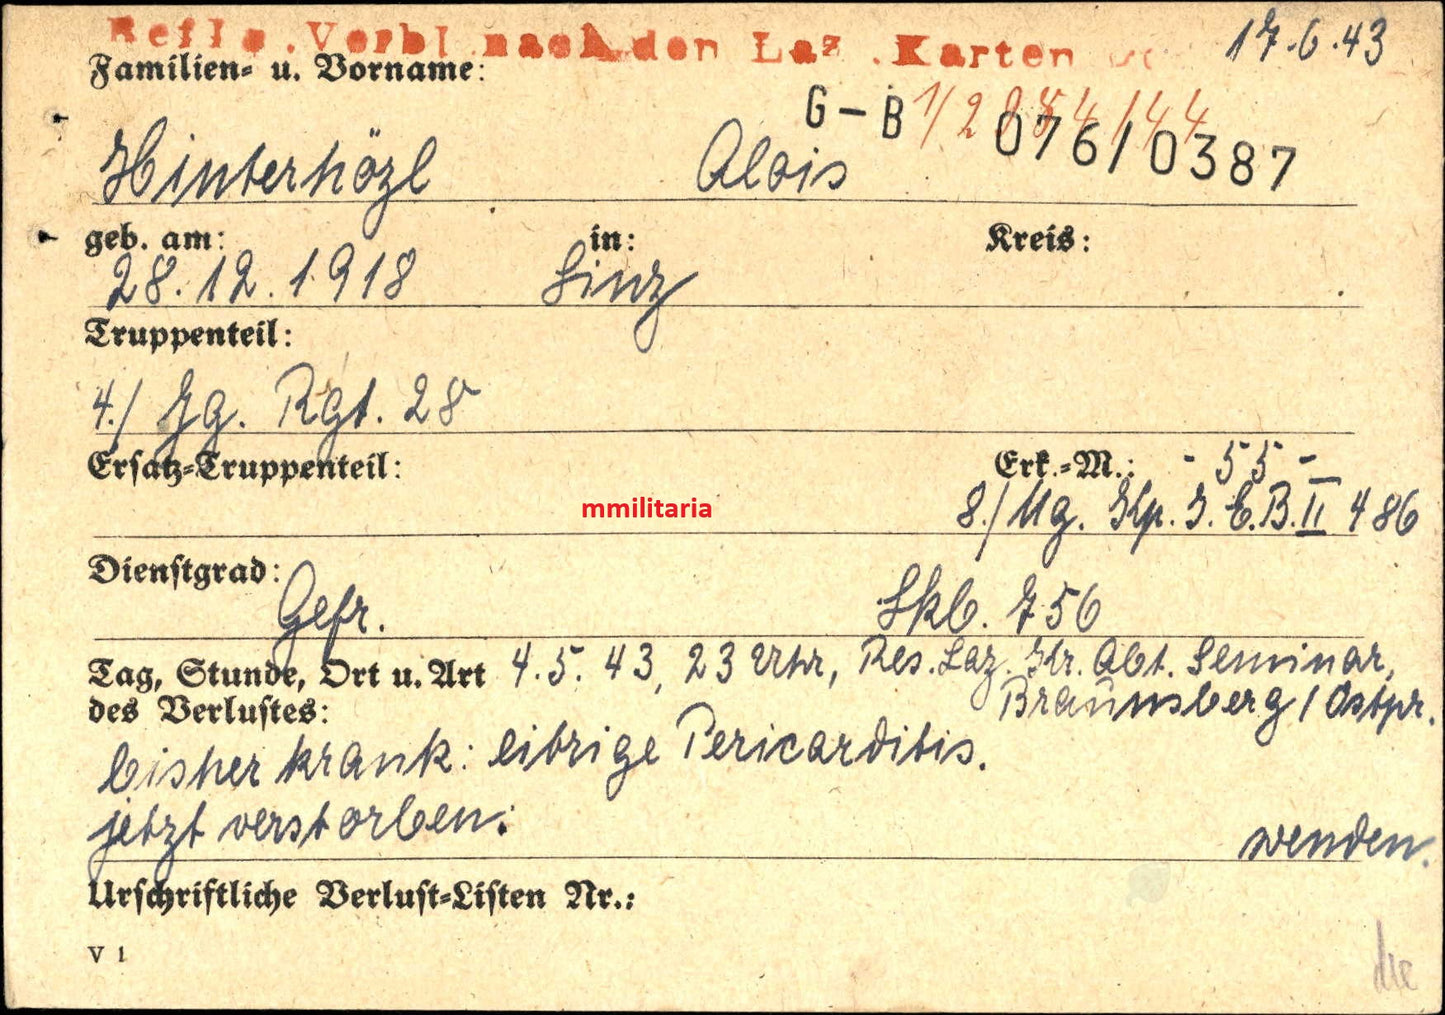 Verbl nach den Laz. Karten
17.6.43
Familien- u. Vorname:
G-B 1/2084/44
076/0387
Hinterhözl Alois
geb. am: in: Kreis:
28.12.1918 Linz
Truppenteil:
4./ Jg. Rgt. 28
Ersatz-Truppenteil: Erk.-M.: - 55 -
mmilitaria
8./ Mg. Kp. J. E.B. II 486
Dienstgrad:
Gefr. 756
Tag, Stunde, Ort u. Art 4.5.43, 23 Uhr, Res. Laz. Kr. Abt. Seminar,
des Verlustes: Braunsberg/Ostpr.
bisher krank: eitrige Pericarditis.
jetzt verstorben.
wenden.
Urschriftliche Verlust-Listen Nr.:
V 1